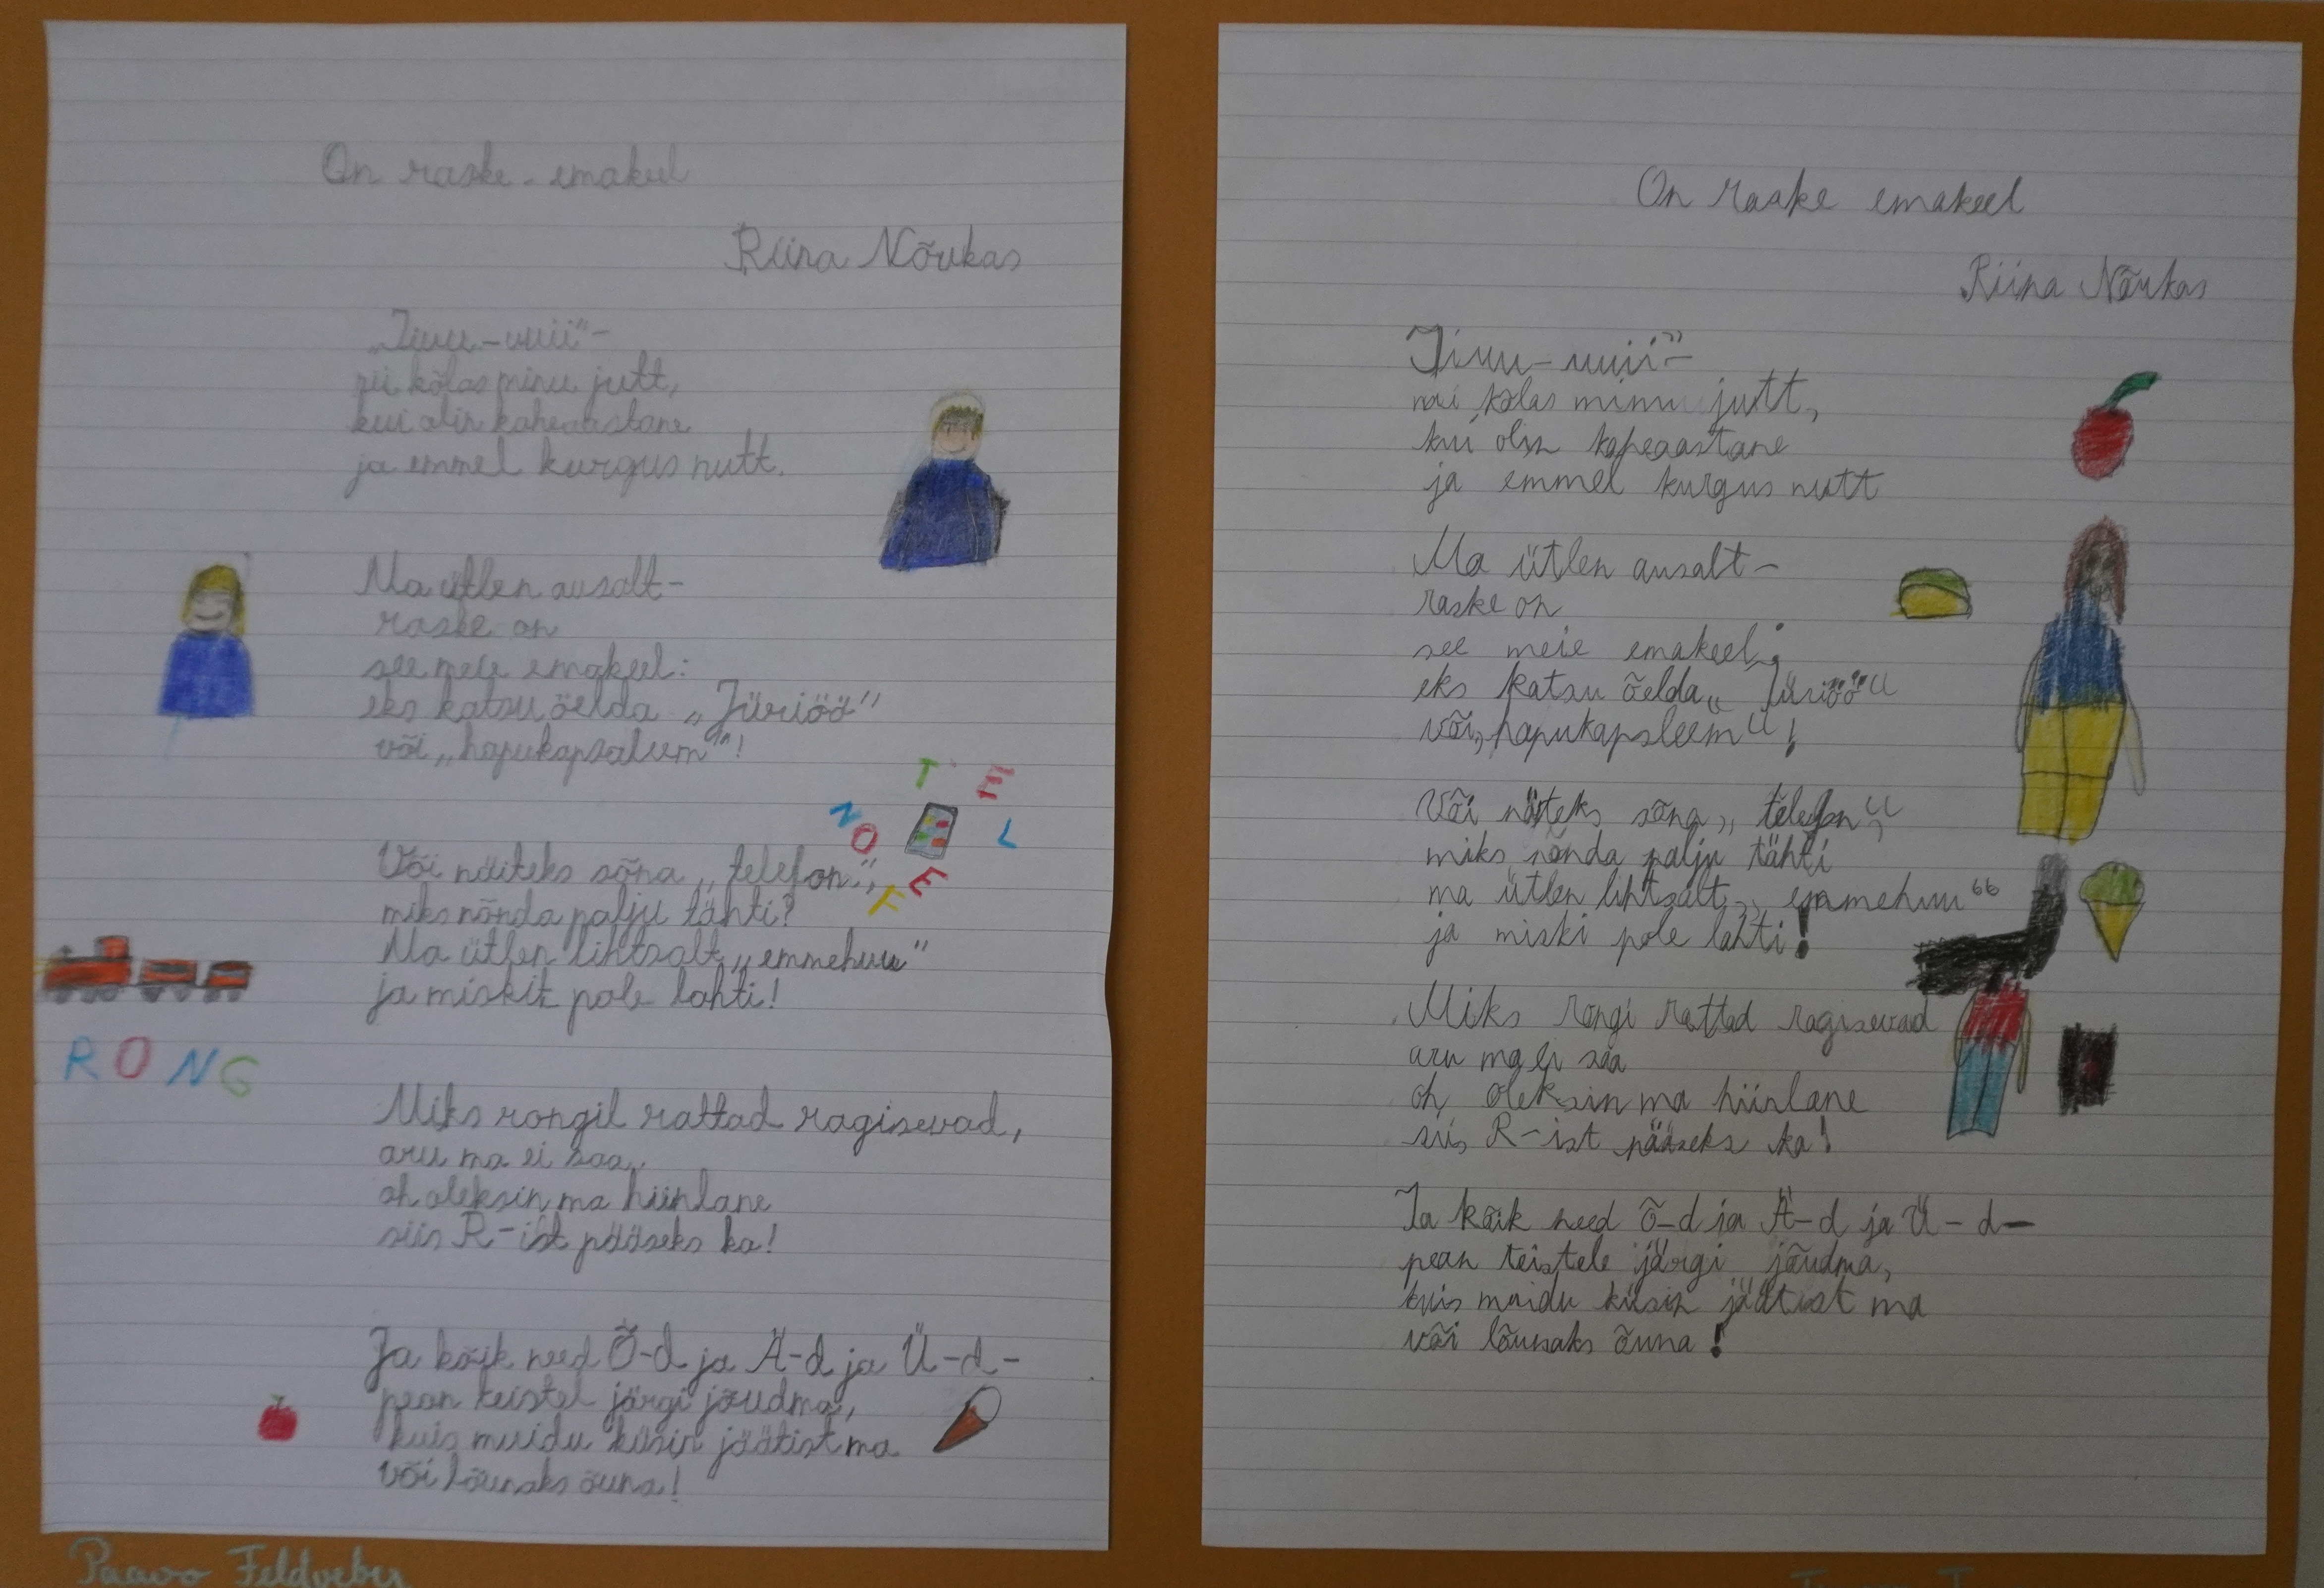 On raske - emakeel
Riina Nõukas
„Iiuu-uuii"-
nii kõlas minu jutt,
kui olin kaheaastane
ja emmel kurgus nutt.
Ma ütlen ausalt-
raske on
see meie emakeel:
eks katsu öelda „Jüriöö"
või „hapukapsa
T E L E F O N
Või näiteks sõna „telefon",
miks nõnda palju tähti?
Ma ütlen lihtsalt „emmehuu"
ja miskit pole lahti!
R O N G
Miks rongil rattad ragisevad,
aru ma ei saa,
oh oleksin ma hiinlane
siis R-ist pääseks ka!
Ja kõik need Õ-d ja Ä-d ja Ü-d-
pean teistel järgi jõudma,
kuis muidu küsin jäätist ma
või lõunaks õuna!
Paavo Feldveber
On raske emakeel
Riina Nõukas
Iiuu-uuii"-
nii kõlas minu jutt,
kui olin kaheaastane
ja emmel kurgus nutt
Ma ütlen ausalt-
raske on
see meie emakeel:
eks katsu õelda „Jüriöö"
või „hapukapsleem"!
Või näiteks sõna „telefon",
miks nõnda palju tähti
ma ütlen lihtsalt „emmehuu"
ja miski pole lahti!
Miks rongi rattad ragisevad
aru ma ei saa
oh, oleksin ma hiinlane
siis R-ist pääseks ka!
Ja kõik need Õ-d ja Ä-d ja Ü-d-
pean teistele järgi jõudma,
kuis muidu küsin jäätist ma
või lõunaks õuna!